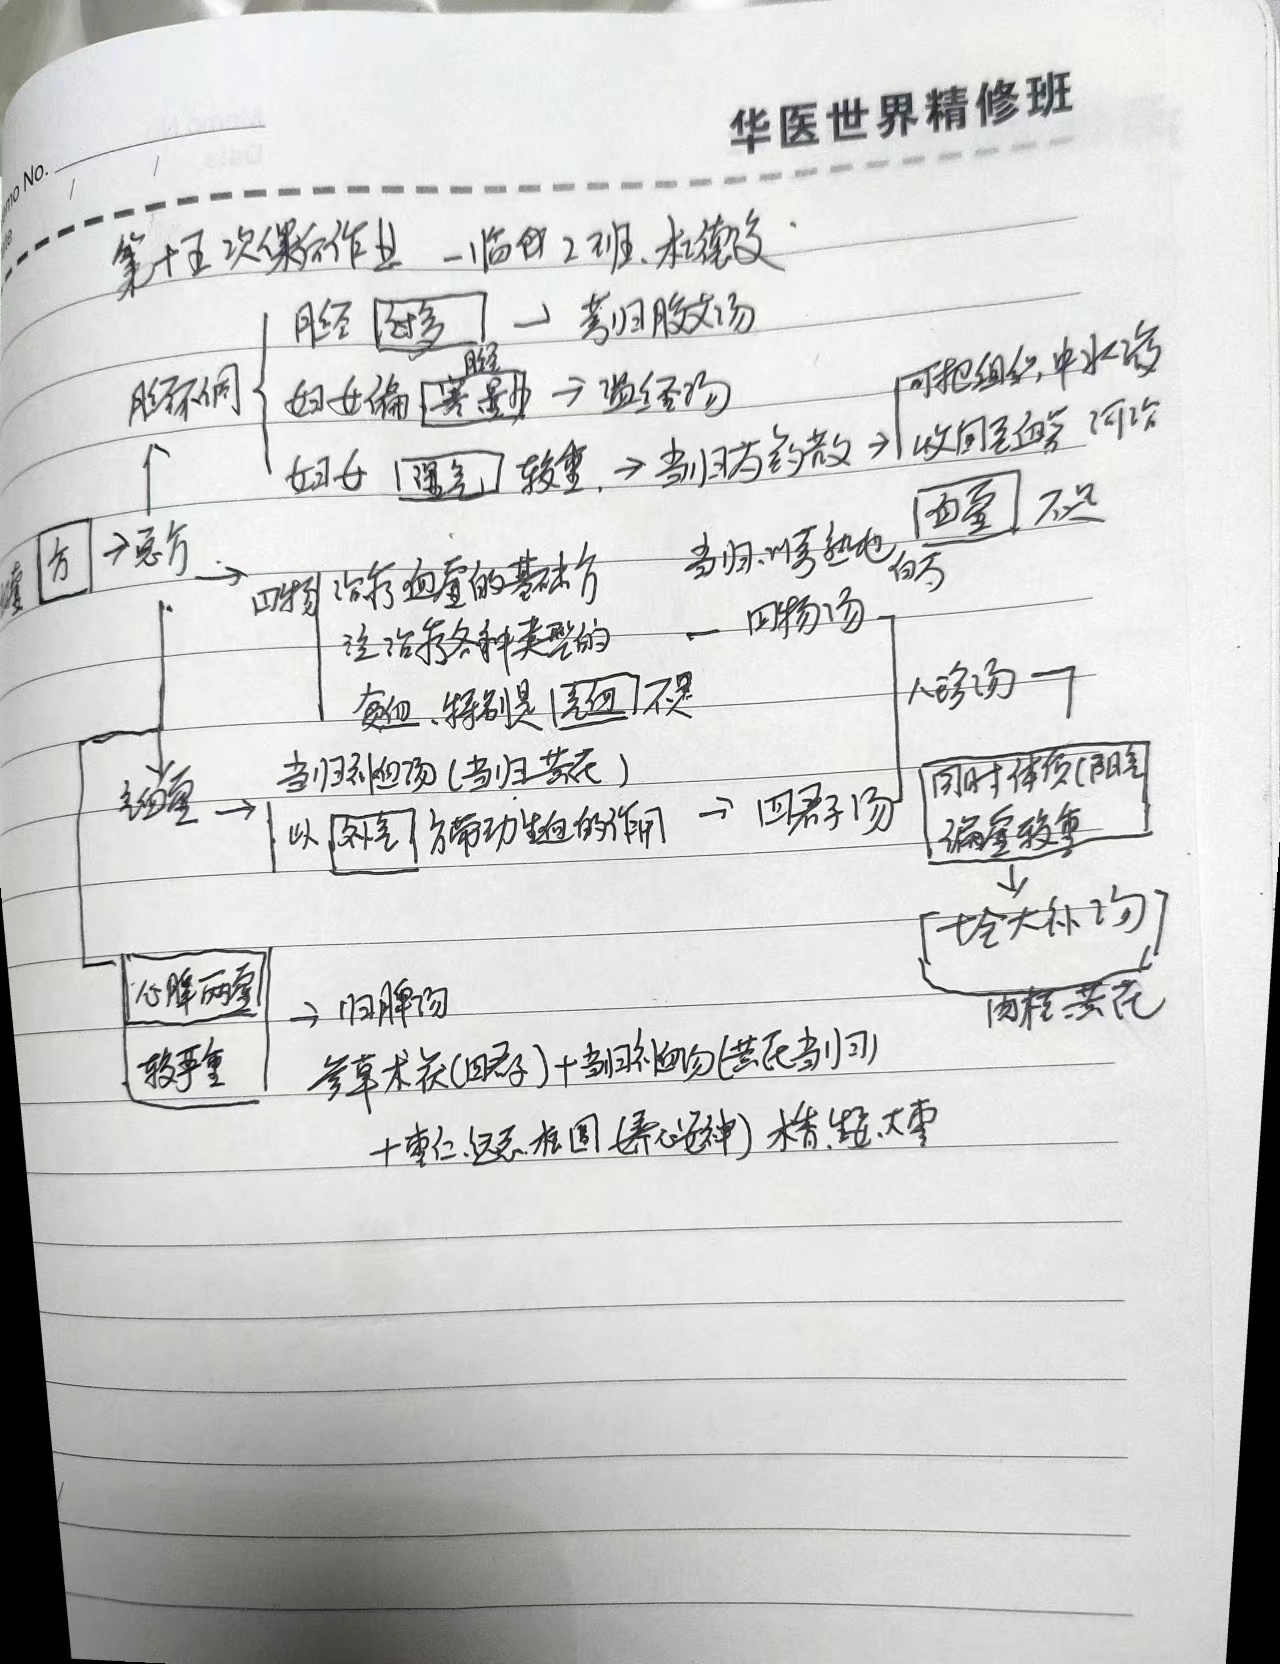 华医世界精修班
Memo No.
第十五次课后作业 一临 2班、杜德
月经 过多 → 芎归胶艾汤
月经
妇女偏 寒 量少 → 温经汤
妇女 湿气 较重 → 当归芍药散 → 可把组织中水液
收回至血管
月经不调
方 → 总方
四物 治疗血虚的基础方
注治疗各种类型的
贫血、特别是 不足
当归、川芎熟地 白芍 血虚 不足
四物汤
八珍汤
血虚 → 当归补血汤(当归黄芪)
以 补气 方带动生血的作用 → 四君子汤
同时体质(阳气
偏虚较重
十全大补汤
肉桂、黄芪
心脾两虚
较严重
→ 归脾汤
参草术茯(四君子)+当归补血汤(黄芪当归)
+枣仁、远志、桂圆(养心安神) 木香、生姜、大枣